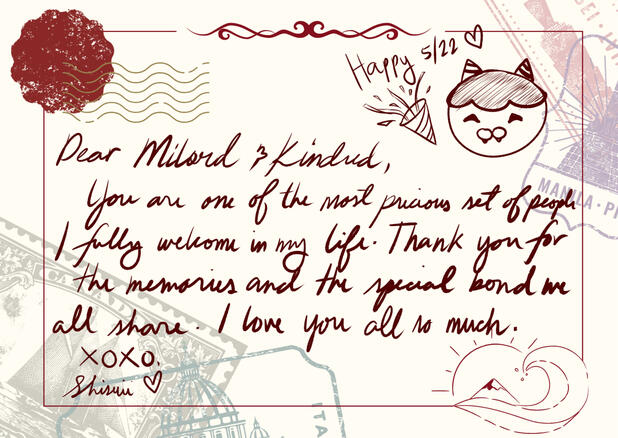 Happy 5/22 ♡
Dear Milord & Kindred,
You are one of the most precious set of people
I fully welcome in my life. Thank you for
the memories and the special bond we
all share. I love you all so much.
XOXO.
Shisui ♡
MANILA · P
ITA